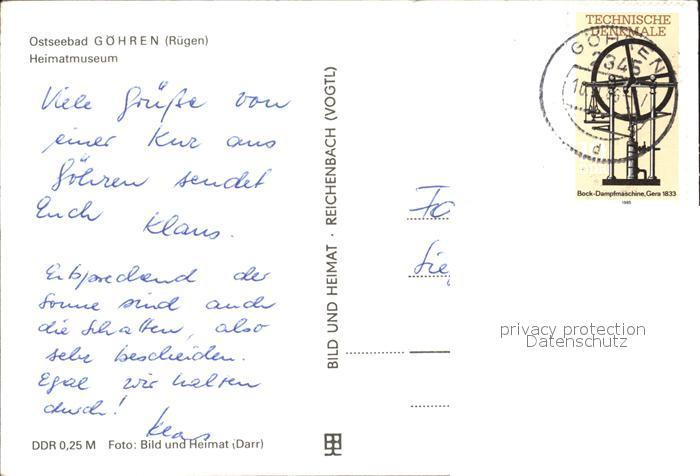 Ostseebad GÖHREN (Rügen)
Heimatmuseum
Viele Grüße von
einer Kur aus
Göhren sendet
Euch Klaus.
Entsprechend der
Sonne sind auch
die Schatten, also
sehr bescheiden.
Egal wir halten
durch!
Klaus
DDR 0,25 M Foto: Bild und Heimat (Darr)
BILD UND HEIMAT · REICHENBACH (VOGTL)
TECHNISCHE
DENKMALE
GÖHREN
2345
d
Bock-Dampfmaschine, Gera 1833
1985
privacy protection
Datenschutz